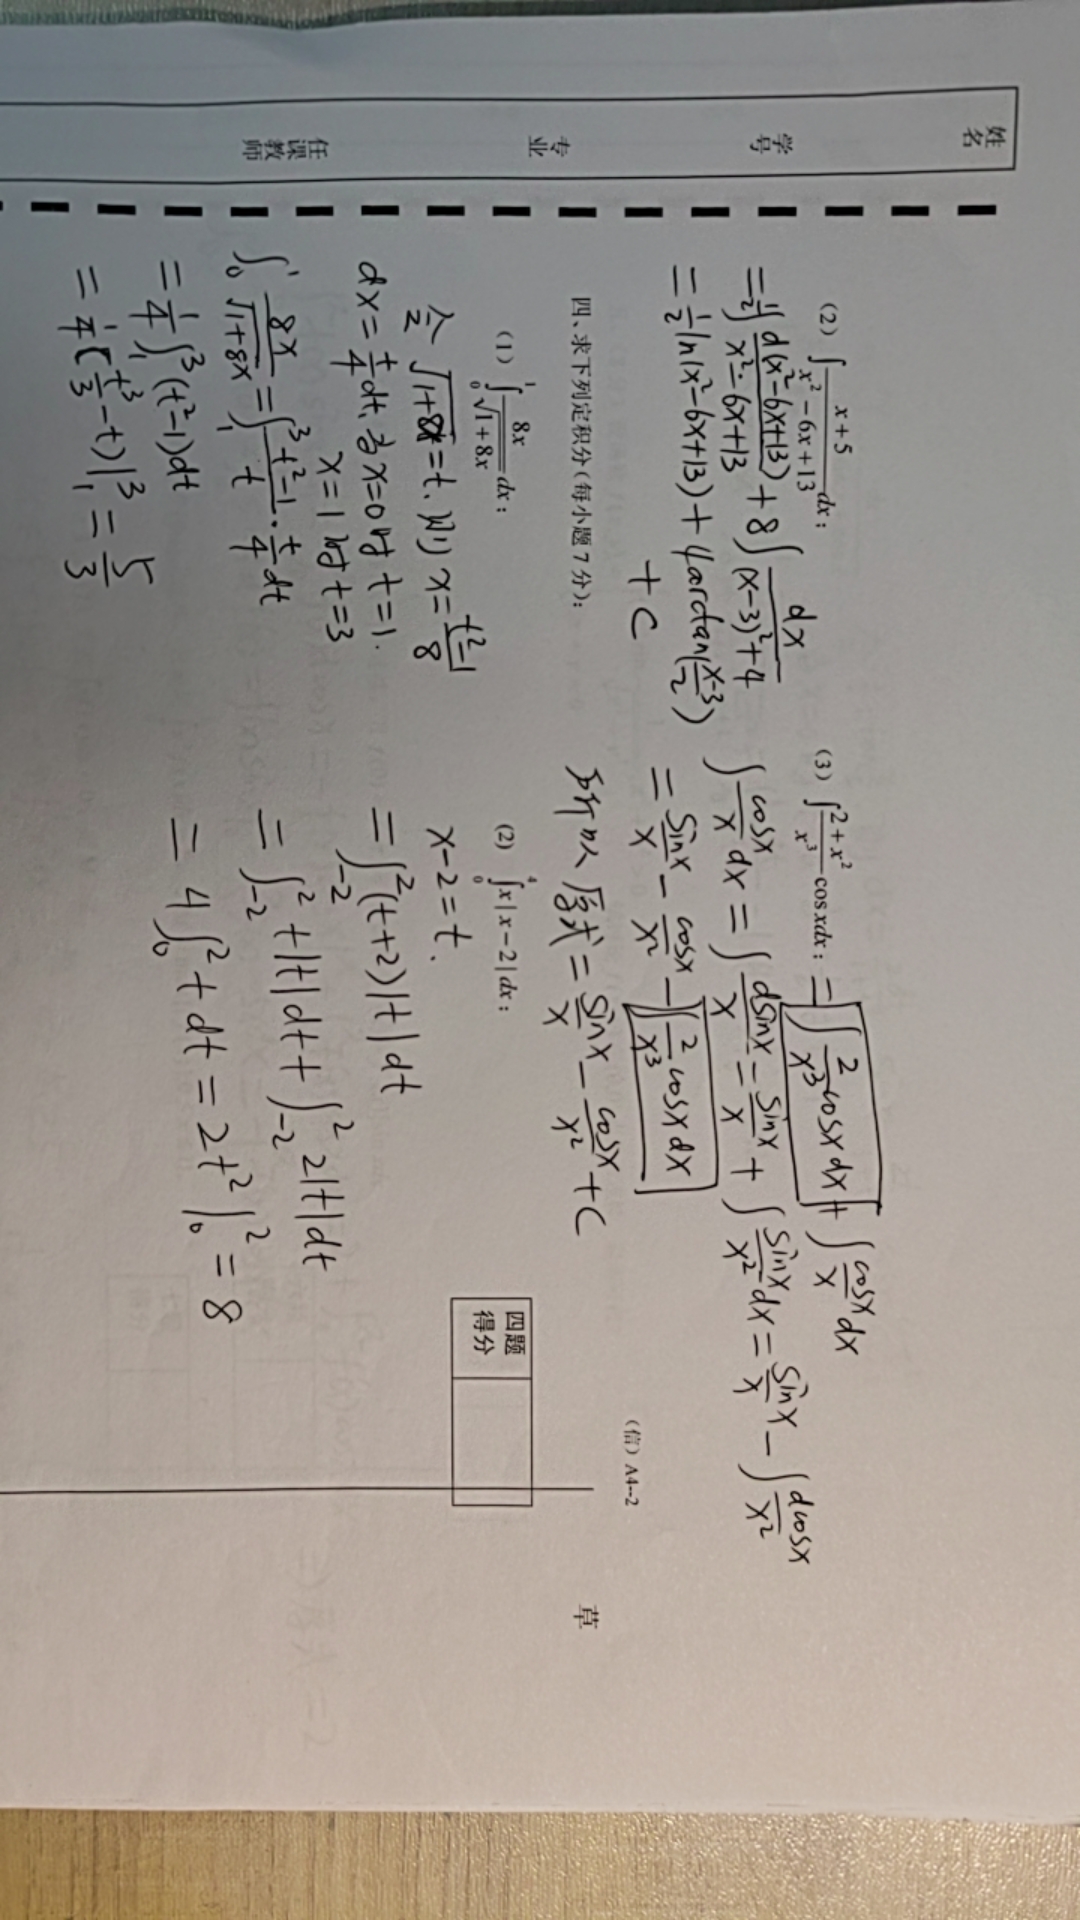 姓名
学号
专业
任课教师
(2) ∫ (x+5)/(x²-6x+13) dx;
= 1/2 ∫ d(x²-6x+13)/(x²-6x+13) + 8∫ dx/((x-3)²+4)
= 1/2 ln(x²-6x+13) + 4arctan((x-3)/2)
+ C
(3) ∫ (2+x²)/x³ cosxdx; = ∫ 2/x³ cosx dx + ∫ cosx/x dx
∫ cosx/x dx = ∫ dsinx/x = sinx/x + ∫ sinx/x² dx = sinx/x - ∫ dcosx/x²
= sinx/x - cosx/x² - ∫ 2/x³ cosx dx
所以 原式 = sinx/x - cosx/x² + C
(信) A4--2
四、求下列定积分(每小题7分):
四题得分
草
(1) ∫₀¹ 8x/√(1+8x) dx;
令 √(1+8x) = t. 则 x = (t²-1)/8
dx = t/4 dt, 当 x=0 时 t=1.
x=1 时 t=3
∫₀¹ 8x/√(1+8x) = ∫₁³ (t²-1)/t · t/4 dt
= 1/4 ∫₁³ (t²-1)dt
= 1/4 [t³/3 - t)|₁³ = 5/3
(2) ∫₀⁴ x|x-2|dx;
x-2=t.
= ∫₋₂² (t+2)|t|dt
= ∫₋₂² t|t|dt + ∫₋₂² 2|t|dt
= 4∫₀² t dt = 2t²|₀² = 8